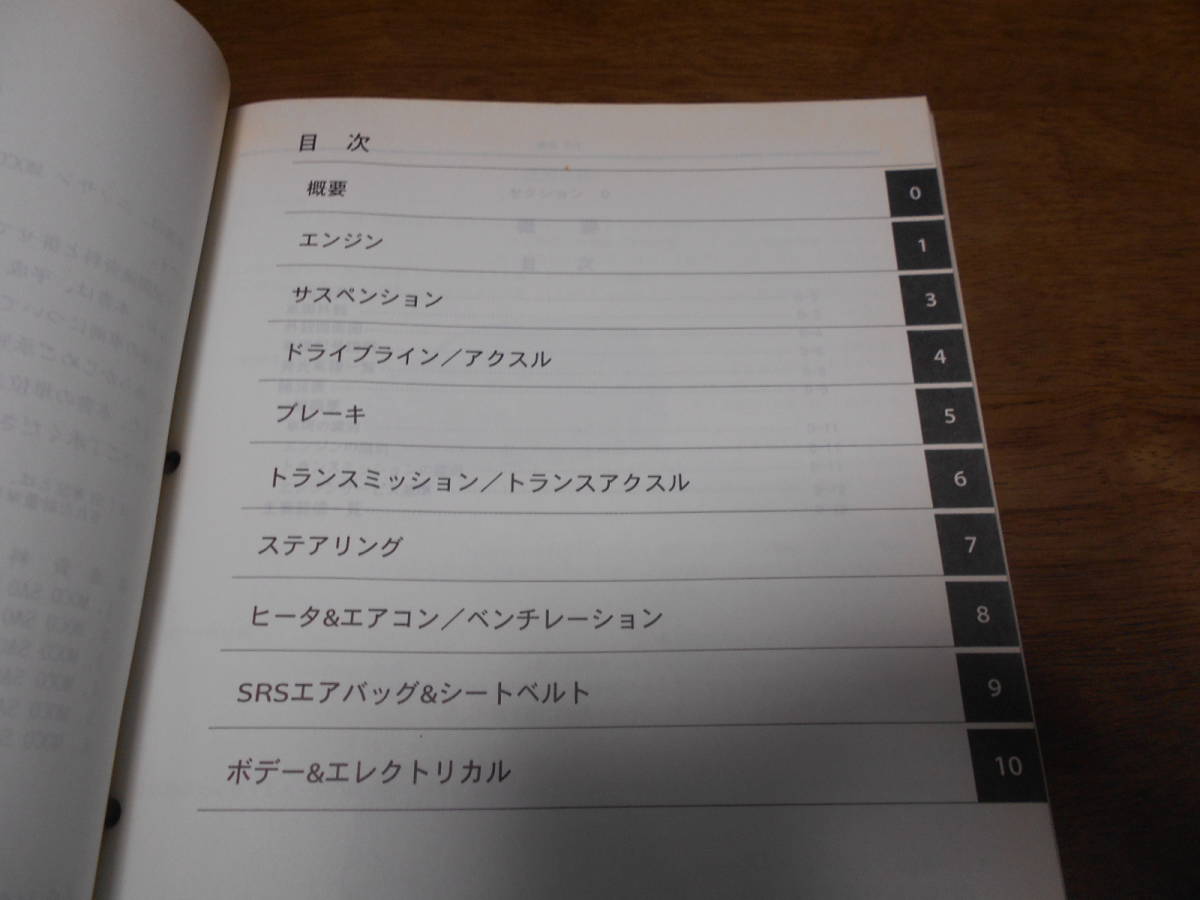 目 次
概要 0
エンジン 1
サスペンション 3
ドライブライン/アクスル 4
ブレーキ 5
トランスミッション/トランスアクスル 6
ステアリング 7
ヒータ&エアコン/ベンチレーション 8
SRSエアバッグ&シートベルト 9
ボデー&エレクトリカル 10